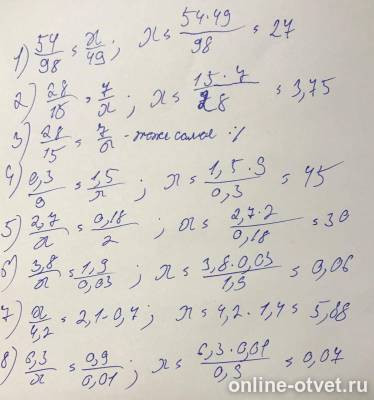 1) 54/98 = x/49; x = 54·49/98 = 27
2) 28/15 = 7/x; x = 15·7/28 = 3,75
3) 28/15 = 7/x - тоже самое %
4) 0,3/9 = 1,5/x; x = 1,5·9/0,3 = 45
5) 2,7/x = 0,18/2; x = 2,7·2/0,18 = 30
6) 3,8/x = 1,9/0,03; x = 3,8·0,03/1,9 = 0,06
7) x/4,2 = 2,1-0,7; x = 4,2·1,4 = 5,88
8) 6,3/x = 0,9/0,01; x = 6,3·0,01/0,3 = 0,07
online-otvet.ru